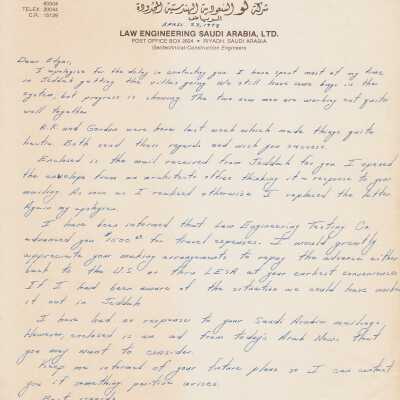 40504
TELEX 20044
C.R. 15126
شركة لو السعودية الهندسية المحدودة
الرياض
APRIL 23, 1978
LAW ENGINEERING SAUDI ARABIA, LTD.
POST OFFICE BOX 2624 • RIYADH, SAUDI ARABIA
Geotechnical-Construction Engineers
Dear Edgar,
I apologize for the delay in contacting you. I have spent most of my time
in Jeddah getting the villas going. We still have some bugs in the
system, but progress is showing. The two new men are working out quite
well together.
R.K. and Gordon were here last week which made things quite
hectic. Both send their regards and wish you success.
Enclosed is the mail received from Jeddah for you. I opened
the envelope from an architects office thinking it a response to your
mailing. As soon as I realized otherwise I replaced the letter.
Again my apologies.
I have been informed that Law Engineering Testing Co.
advanced you $1500 for travel expenses. I would greatly
appreciate your making arrangements to repay the advance either
back to the U.S. or thru LESA at your earliest convenience.
If I had been aware of the situation we could have worked
it out in Jeddah.
I have had no responses to your Saudi Arabia mailings.
However, enclosed is an ad from today's Arab News that
you may want to consider.
Keep me informed of your future plans so I can contact
you if something positive arises.
Best regards